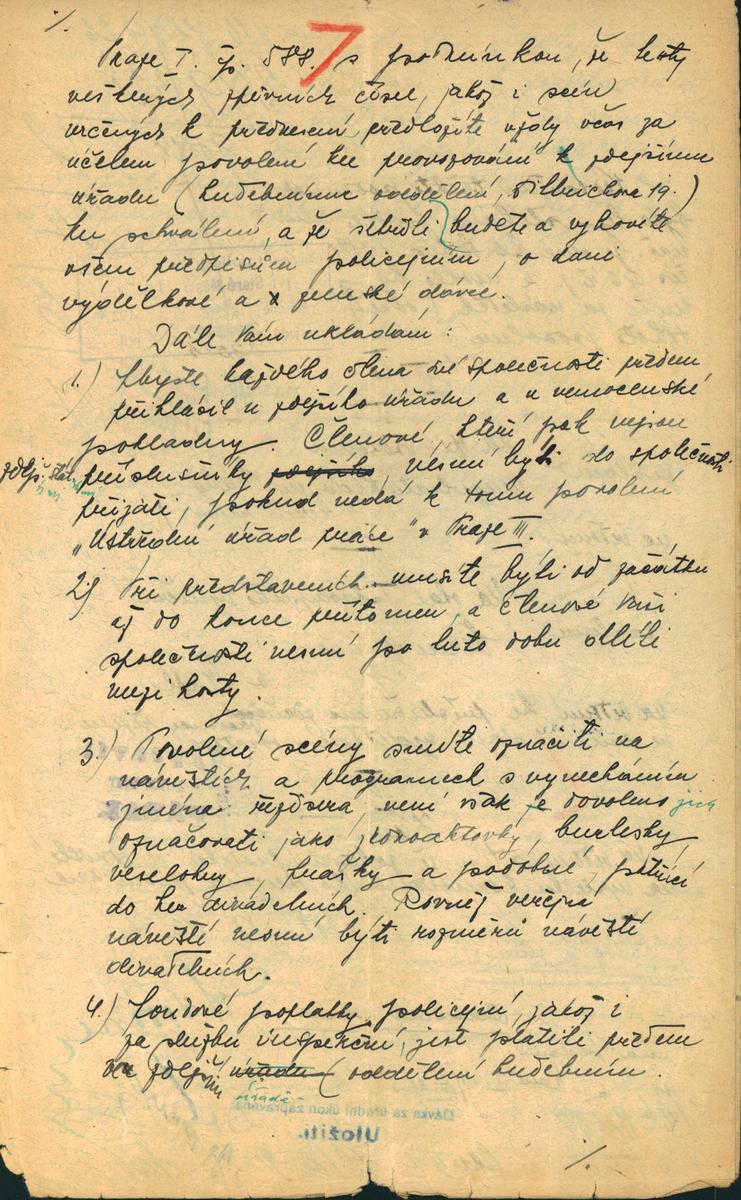 Praze I. čp. 588. s podmínkou, že texty
veškerých zpěvních čísel, jakož i scén
určených k přednesení předložíte vždy včas za
účelem povolení ku provozování k zdejšímu
úřadu (hudebnímu oddělení, 19.)
ku schválení, a že šetřiti budete a vyhovíte
všem předpisům policejním, o dani
výdělkové a zemské dávce.
Dále Vám ukládám:
1.) abyste každého člena své společnosti předem
přihlásil u zdejšího úřadu a u nemocenské
pokladny. Členové, kteří pak nejsou
zdejš. stát. příslušníky zdejšího nesmí býti do společnosti
přijati, pokud nedá k tomu povolení
„Ústřední úřad práce" v Praze III.
2) Při představeních musíte býti od začátku
až do konce přítomen, a členové Vaší
společnosti nesmí po tuto dobu dlíti
mezi hosty.
3.) Povolené scény smíte označiti na
návěstích a programech s vynecháním
jména režiséra, není však je dovoleno jich
označovati jako jednoaktovky, burlesky,
veselohry, frašky a podobné, patřící
do her divadelních. Rovněž veřejná
návěstí nesmí býti rozměrů návěstí
divadelních.
4.) Fondové poplatky policejní, jakož i
za službu inspekční, jest platiti předem
ve zdejším úřadu (oddělení hudebním.
úřadě
Dávka za úřední úkon zapravena
Uložiti.